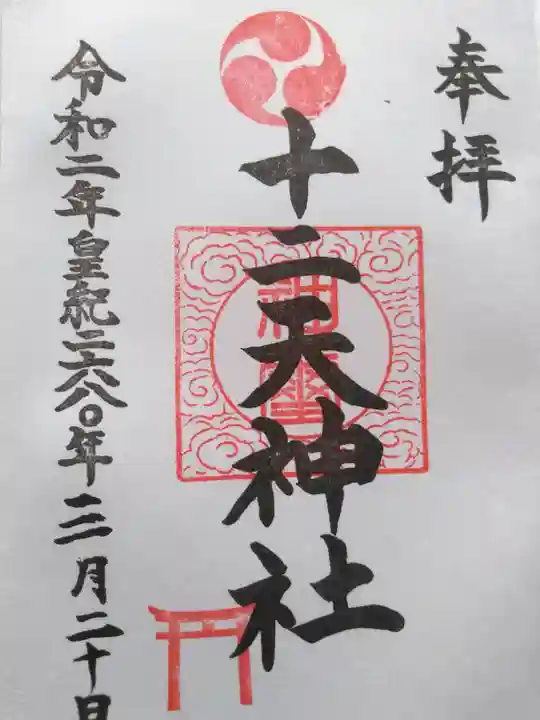 奉拝
十二天神社
令和二年皇紀二六八〇年三月二十日